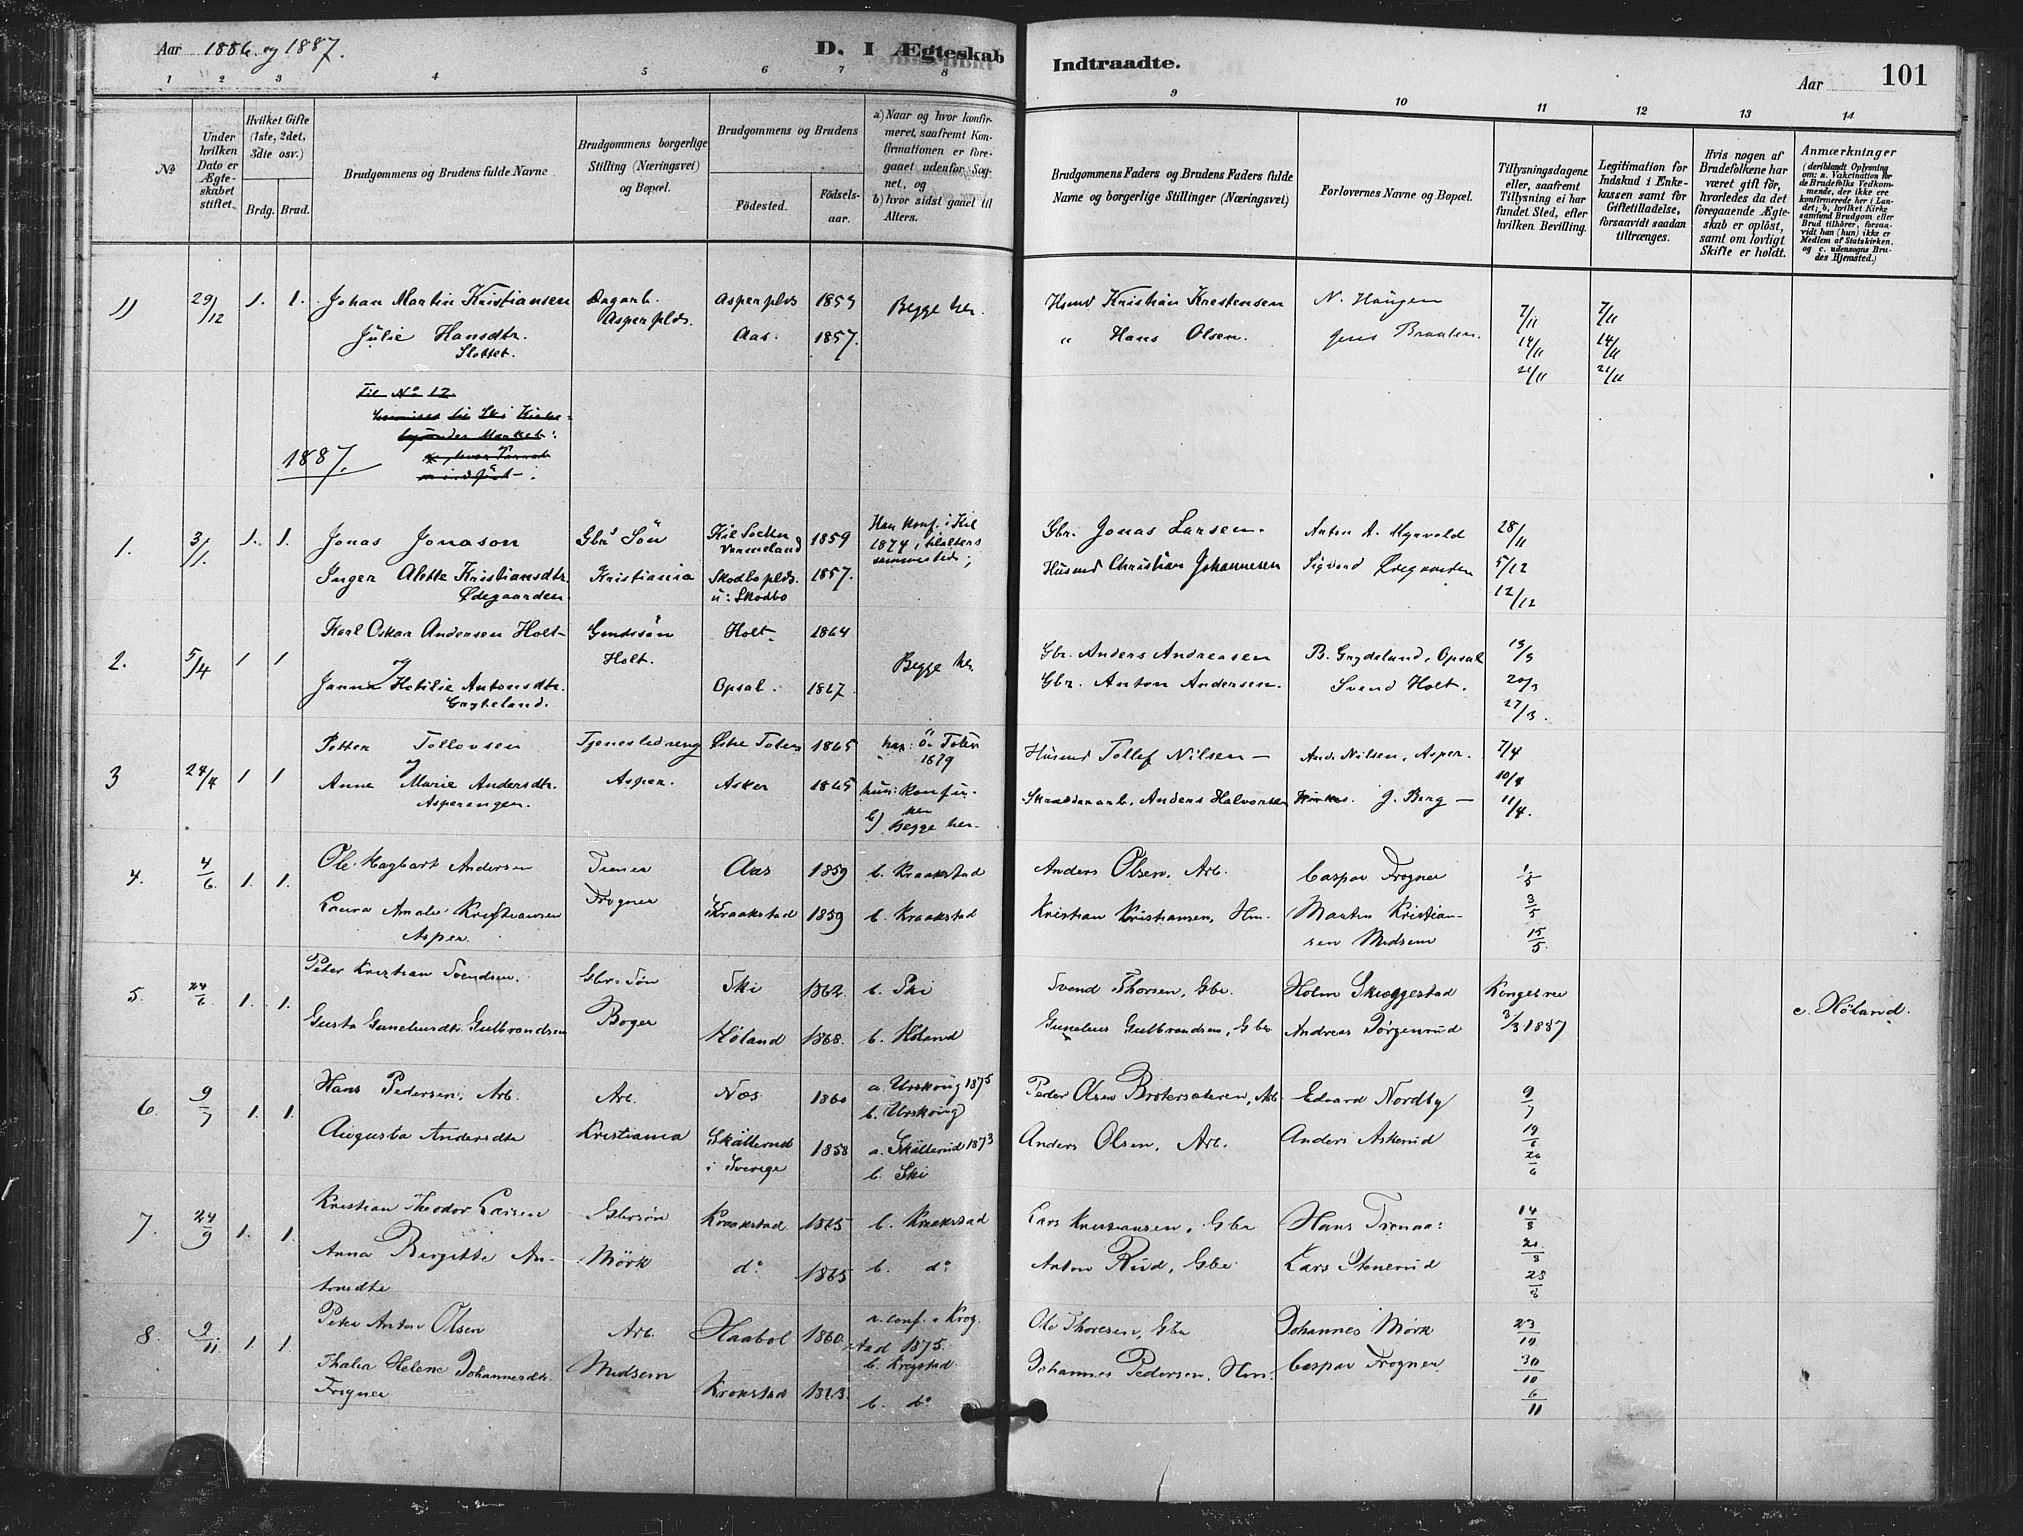 Aar 1886 og 1887.
D. I Ægteskab
Indtraadte.
Aar
101
1 2 3 4 5 6 7 8
9 10 11 12 13 14
No
Under hvilken Dato er Ægteskabet stiftet.
Hvilket Gifte (1ste, 2det, 3die osv.)
Brdg. Brud.
Brudgommens og Brudens fulde Navne
Brudgommens borgerlige Stilling (Næringsvei) og Bopæl.
Brudgommens og Brudens
Födested.
Födsels-aar.
a) Naar og hvor konfirmeret, saafremt Konfirmationen er foregaaet udenfor Sognet, og
b) hvor sidst gaaet til Alters.
Brudgommens Faders og Brudens Faders fulde Navne og borgerlige Stillinger (Næringsvei)
Forlovernes Navne og Bopæl.
Tillysningsdagene eller, saafremt Tillysning ei har fundet Sted, efter hvilken Bevilling.
Legitimation for Indskud i Enkekassen samt for Giftetilladelse, forsaavidt saadan tiltrænges.
Hvis nogen af Brudefolkene har været gift för, hvorledes da det foregaaende Ægteskab er oplöst, samt om lovligt Skifte er holdt.
Anmærkninger
(deriblandt Oplysning om: a. Vakcination for de Brudefolks Vedkommende, der ikke ere konfirmerede her i Landet; b. hvilket Kirkesamfund Brudgom eller Brud tilhörer, forsaavidt han (hun) ikke er Medlem af Statskirken, og c. udensogns Brudes Hjemsted.)
11 29/12 1. 1. Johan Martin Kristiansen Dagarb. Asperplds. Asperplds 1859 Begge her. Husmd Kristian Kristensen N. Haugen 7/11 7/11
Julie Hansdtr. Slottet. Aas. 1857. " Hans Olsen. Jens Braaten. 14/11 14/11
21/11 21/11
Til No 12
1887.
1. 3/1. 1. 1. Jonas Jonason Gbrs Sön Kil Socken Vermeland 1859 Han konf. i Kil 1874, tilalters sammesteds; Gbr. Jonas Larsen. Anton A. Myrvold 28/11
Inger Alette Kristiansdtr. Ødegaarden. Kristiania Skodboplds. u: Skodbo 1857. Husmd Christian Johannesen Sigvard Ødegaarden 5/12
12/12
2. 5/4 1 1 Karl Oskar Andersen Holt Gmdssön Holt. Holt. 1864 Begge her. Gbr. Anders Andreasen B. Grydeland, Opsal 13/3
og
Antonsdtr. Opsal. 1867. Gbr. Anton Andersen. Svend Holt. 20/3
27/3.
3 24/4 1 1 Petter Tollevsen Tjenestedreng Østre Toten 1865 han: ö. Toten 1879 Husmd Tollef Nilsen And. Nilsen, Asper. 7/4
og
Anne Marie Andersdtr. Asperengen. Asper. Asker 1865 hun: konfir. her Skrædderarb. Anders Halvorsen J. Berg 10/4
b) Begge her. 11/4.
4. 4/6. 1. 1. Ole Hagbart Andersen Tjener Aas 1859 b. Kraakstad Anders Olsen, Arb. Caspar Frogner 1/5
Laura Amalie Kristiansen Asper. Frogner Kraakstad 1859 b. Kraakstad Kristian Kristiansen, Hm. Martin Kristiansen Midsem 3/5
15/5.
5. 24/6. 1. 1. Peter Kristian Svendsen. Gbr. Sön Ski 1862. b. Ski Svend Thorsen, Gbr. Holm Skuggestad Kongebrev
Gusta Gulbrandsen Boger Höland 1868. b. Höland Gulbrandsen, Gbr. Andreas Jörgenrud 3/3 1887 c. Höland.
6. 9/7 1. 1. Hans Pedersen, Arb. Arb. Næs 1860 a. Urskoug 1875 b. Urskoug Peder Olsen Brotersæteren, Arb Edvard Nordby 9/7
Augusta Andersdtr Kristiania Skällerud i Sverige 1858 a. Skällerud 1873 b. Ski Anders Olsen, Arb. Anders Askerud 19/6
26/6
7. 24/9 1. 1. Kristian Theodor Larsen Gbrsön Kraakstad 1865 b. Kraakstad Lars Kristiansen, Gbr Hans 14/8
Anna Birgitte Antonsdtr Mörk do 1865 b. do Anton Rud, Gbr Lars Stenerud 21/8
28/8
8. 9/11 1. 1. Peter Anton Olsen Arb. Haabol 1860. a. conf. i Krogstad 1875. b. Krogstad Ole Thoresen, Gbr Johannes Mörk 23/10
Thalia Helene Johannesdtr. Frogner Midsem Krokstad 1863. b. do Johannes Pedersen, Hm. Caspar Frogner 30/10
6/11